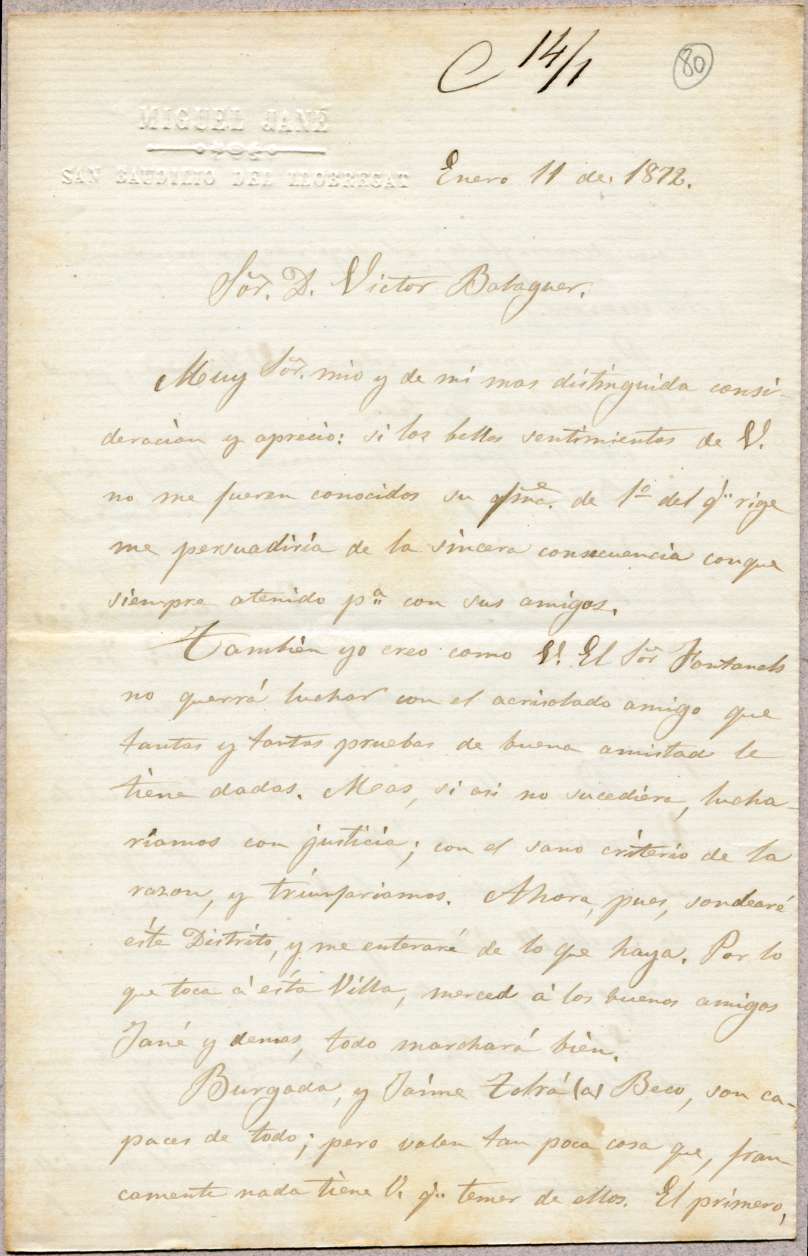 C 14/1
80
MIGUEL JANÉ
SAN BAUDILIO DEL LLOBREGAT
Enero 11 de 1872.
Sor. D. Victor Balaguer.
Muy Sor. mio y de mi mas distinguida consi-
deracion y aprecio: si los bellos sentimientos de V.
no me fueran conocidos su de 1º del q.e rige
me persuadiria de la sincera consecuencia conque
siempre atenido p.a con sus amigos.
Tambien yo creo como V. El Sor Fontanals
no querrá luchar con el acrisolado amigo que
tantas y tantas pruebas de buena amistad le
tiene dadas. Mas, si asi no sucediera, lucha-
riamos con justicia; con el sano criterio de la
razon, y triunfariamos. Ahora, pues, sondearé
éste Distrito, y me enteraré de lo que haya. Por lo
que toca á ésta Villa, merced á los buenos amigos
Jané y demas, todo marchará bien.
Burgada, y Jaime (a) Beco, son ca-
paces de todo; pero valen tan poca cosa que, fran-
camente nada tiene V. q.e temer de ellos. El primero,